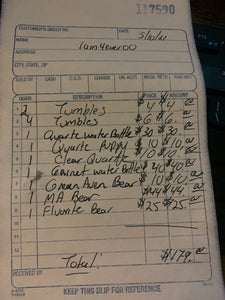 117590
CUSTOMER'S ORDER NO.
DATE 5/10/21
NAME Iam4ever00
ADDRESS
CITY, STATE, ZIP
SOLD BY CASH C.O.D. CHARGE ON. ACCT. MDSE. RETD. PAID OUT
QUAN. DESCRIPTION PRICE AMOUNT
2 Tumbles $4 $4
4 Tumbles $6 $6
1 Quartz Water Bottle $30 $30
1 Quartz Puppy $10 $10
1 Clear Quartz $10 $10
1 Water Bottle $40 $40
1 Green Aven Bear $10 $10
1 MA Bear $44 $44
1 Fluorite Bear $25 $25
Total: $179.
RECEIVED BY
KEEP THIS SLIP FOR REFERENCE